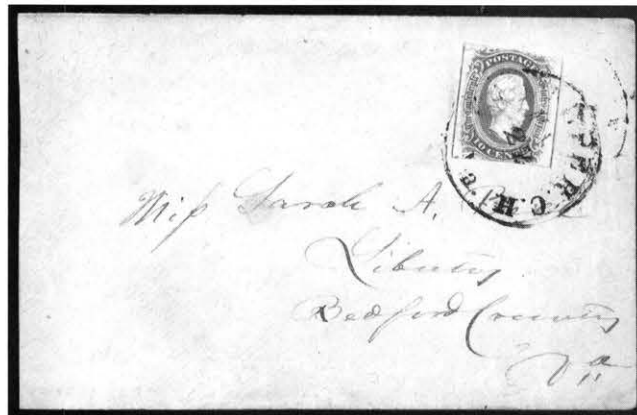 POSTAGE
10 CENTS
C.H.
Miſs Sarah A.
Liberty
Bedford County
Va